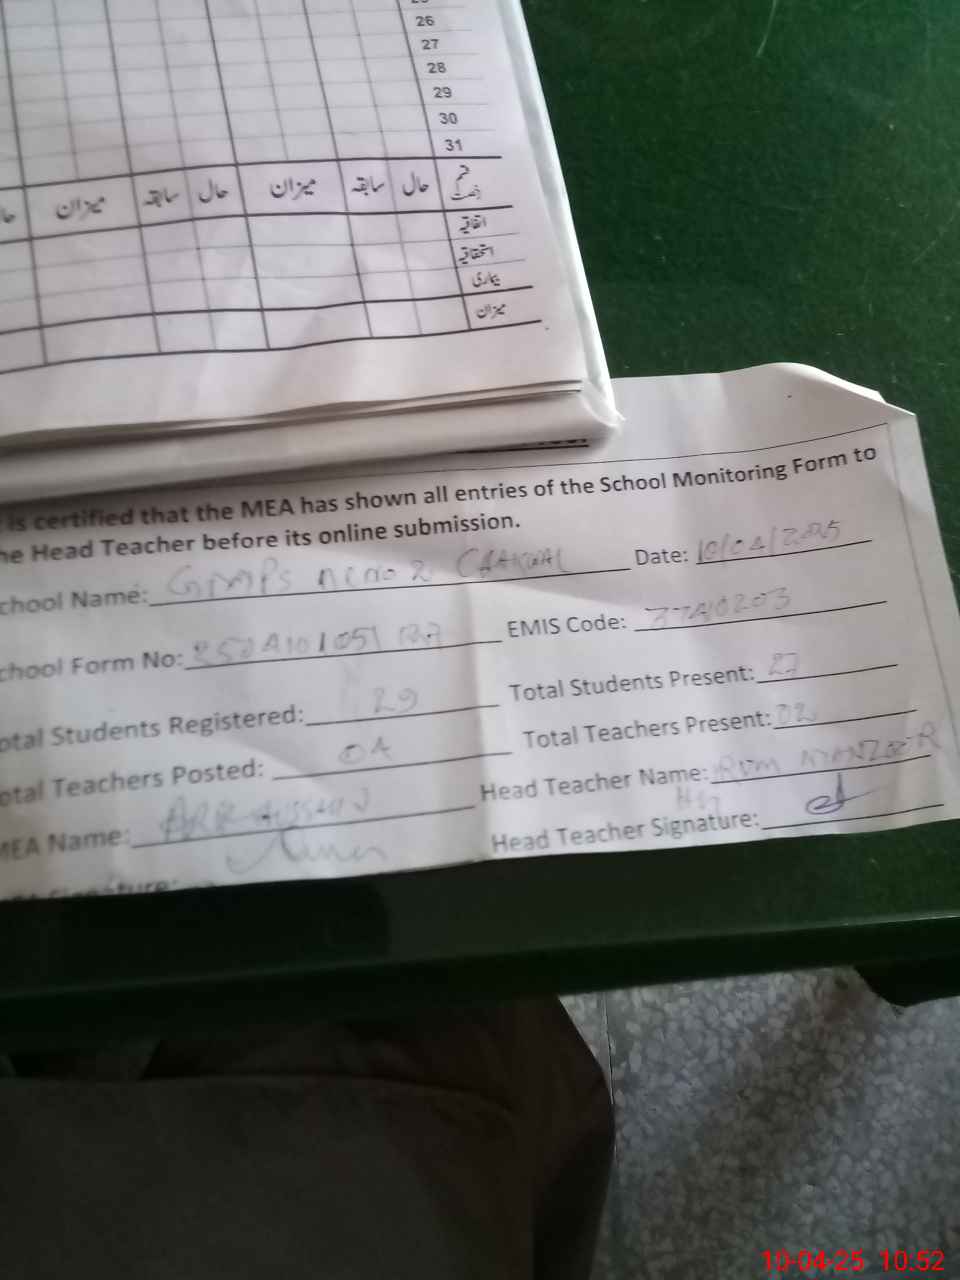 26
27
28
29
30
31
قسم رخصت حال سابقہ میزان حال سابقہ میزان
اتفاقیہ
استحقاقیہ
بیماری
میزان
is certified that the MEA has shown all entries of the School Monitoring Form to
he Head Teacher before its online submission.
chool Name: GMPS Date: 10/04/2025
chool Form No: EMIS Code: 37210203
otal Students Registered: 29 Total Students Present: 27
otal Teachers Posted: 04 Total Teachers Present: 02
MEA Name: Head Teacher Name: MANZOOR
Head Teacher Signature:
10-04-25 10:52